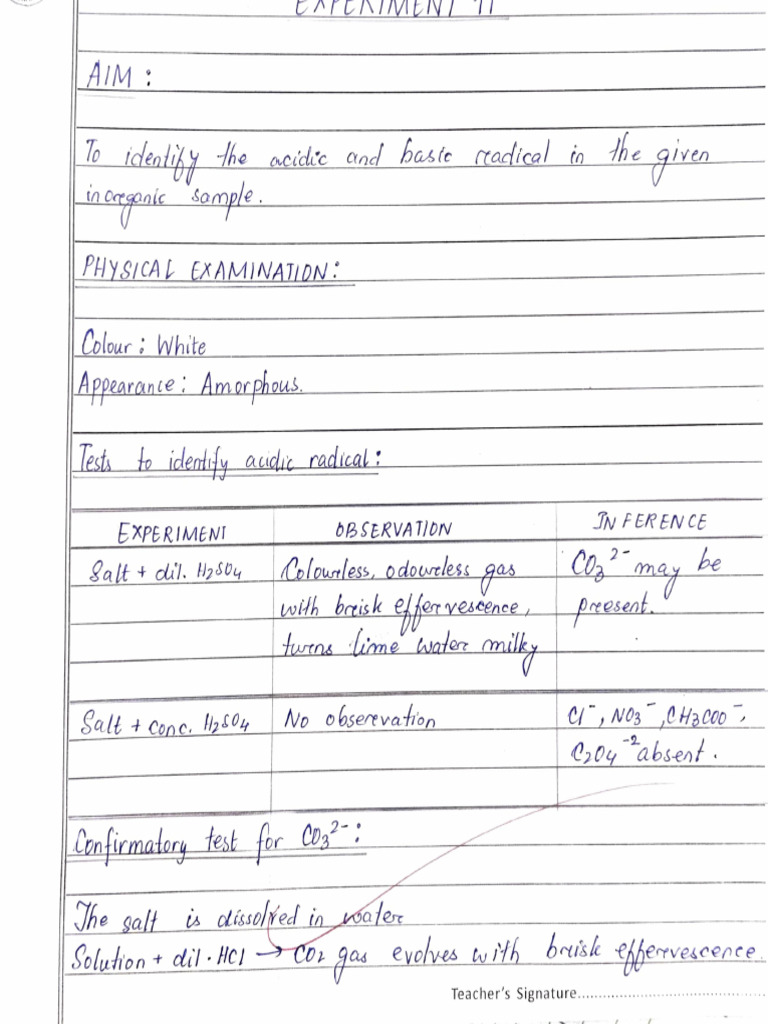 EXPERIMENT 11
AIM :
To identify the acidic and basic radical in the given
inorganic sample.
PHYSICAL EXAMINATION:
Colour: White
Appearance: Amorphous.
Tests to identify acidic radical:
EXPERIMENT OBSERVATION INFERENCE
Salt + dil. H2SO4 Colourless, odourless gas CO3²⁻ may be
with brisk effervescence, present.
turns lime water milky
Salt + conc. H2SO4 No observation Cl⁻, NO3⁻, CH3COO⁻,
C2O4⁻² absent.
Confirmatory test for CO3²⁻:
The salt is dissolved in water
Solution + dil. HCl → CO2 gas evolves with brisk effervescence.
Teacher's Signature